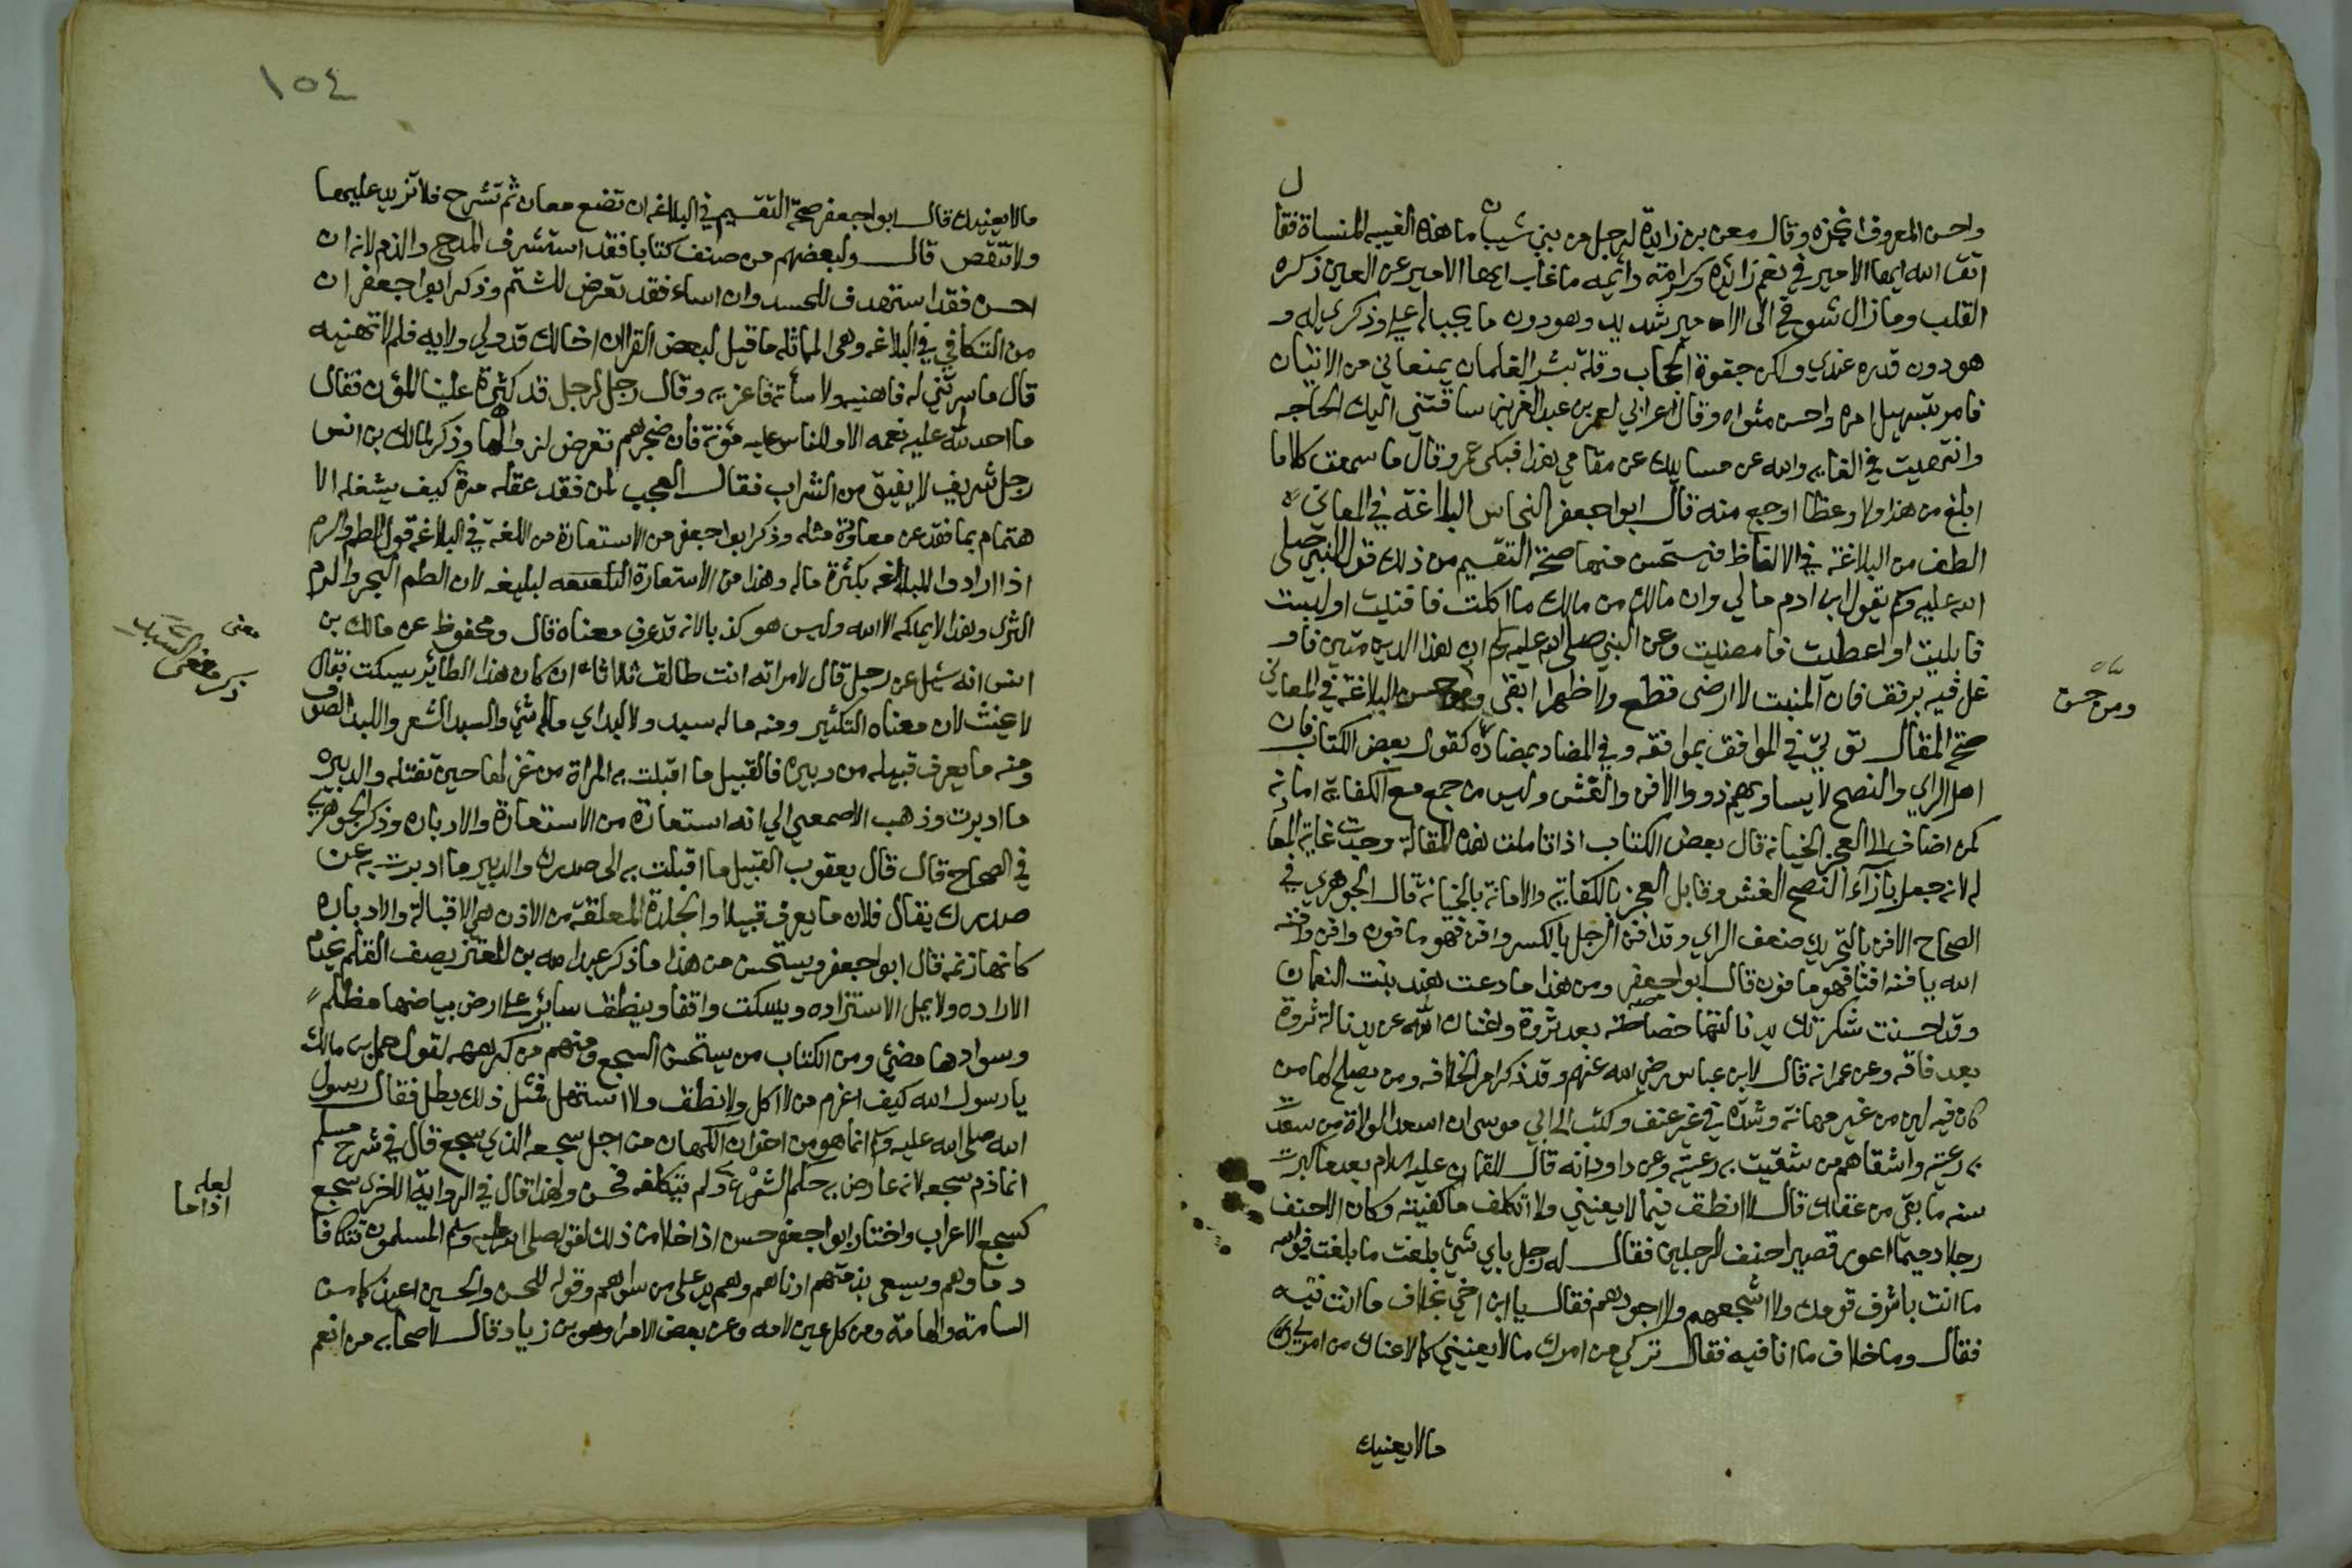 واحسن المعروف انجزه وقال معن بن زايدة لرجل من بني شيبان ما هذه الغيبه المنساة فقال
اتق الله ايها الامير في نعم زائده وكرامة دائمه ما غاب ايها الامير عن العين ذكره
القلب وما زال شوقي الى الامير شديد وهو دون ما يجب له علي وذكري له و
هو دون قدره عندي ولكن جفوة الحجاب وقلة بشر الغلمان يمنعاني من الاتيان
فامر بتسهيل امره واحسن مثواه وقال اعرابي لعمر بن عبد العزيز ساقتني اليك الحاجه
وانتهيت في الغايه والله عن مسايلك عن مقامي هذا فبكى عمر وقال ما سمعت كلاما
ابلغ من هذا ولا وعظا اوجع منه قال ابو اجعفر النحاس البلاغة في المعاني
الطف من البلاغة في الالفاظ فيستحسن منها صحة التقسيم من ذلك قول النبي صلى
الله عليه وسلم يقول ابن ادم مالي وان مالك من مالك ما اكلت فافنيت او لبست
فابليت او اعطيت فامضيت وعن النبي صلى الله عليه وسلم ان هذا الدين متين فاو
غل فيه برفق فان المنبت لا ارضى قطع ولا ظهرا ابقى ومن حسن البلاغة في المعاني
صحة المقال توتي في الموافق بموافقه وفي المضاد بمضاده كقول بعض الكتاب فان
اهل الراي والنصح لا يساويهم ذووا الافن والغش وليس من جمع مع الكفاية امانه
كمن اضاف الى العجز الخيانة قال بعض الكتاب اذا تاملت هذه المقالة وجدت غاية المعا
له لانه جعل بازآء النصح الغش وقابل العجز بالكفاية والامانة بالخيانة قال الجوهري في
الصحاح الافن بالتحريك ضعف الراي وقد افن الرجل بالكسر وافن فهو مافون وافن وافنه
الله يافنه افنا فهو مافون قال ابو اجعفر ومن هذا ما دعت هند بنت النعمان
وقد احسنت شكرتك يد نالتها خصاصة بعد ثروة واغناك الله عن يد نالة ثروة
بعد فاقه وعن عمر انه قال لابن عباس رضي الله عنهم وقد ذكر امر الخلافه ومن يصلح لها من
كان فيه لين من غير مهانة وشدة في غير عنف وكتب الى ابي موسى ان اسعد الولاة من سعدت
به رعيته واشقاهم من شقيت به رعيته وعن داود انه قال للقمان عليه السلام بعد ما كبرت
سنه ما بقي من عقلك قال لا انطق فيما لا يعنيني ولا اتكلف ما كفيته وكان الاحنف
رجلا دحيما اعور قصيرا احنف الرجلين فقال له رجل باي شئ بلغت ما بلغت فوالله
ما انت باشرف قومك ولا اشجعهم ولا اجودهم فقال يا ابن اخي بخلاف ما انت فيه
فقال وما خلاف ما انا فيه فقال تركي من امرك ما لا يعنيني كما لا عناك من امري
مالا يعنيك
ومن حسن
١٥٤
مالا يعنيك قال ابو اجعفر صحة التقسيم في البلاغه ان تضع معان ثم تشرح فلا تزيد عليها
ولا تنقص قال ولبعضهم من صنف كتابا فقد استشرف المدح والذم لانه ان
احسن فقد استهدف للحسد وان اساء فقد تعرض للشتم وذكر ابو اجعفر ان
من التكافي في البلاغه وهى المماثله ما قيل لبعض القرا ان اخالك قد ولي ولايه فلم لا تهنيه
قال ما سرتني له فاهنيه ولا سأته فاعزيه وقال رجل لرجل قد كثرة علينا المؤن فقال
ما احد لله عليه نعمه الا وللناس عليه مؤنة فان ضجرهم تعرض لزوالها وذكر لمالك بن انس
رجل شريف لا يفيق من الشراب فقال العجب لمن فقد عقله مرة كيف يشغله الا
هتمام بما فقد عن معاودة مثله وذكر ابو اجعفر من الاستعارة من اللغة في البلاغة قول الطم والرم
اذا ارادوا المبالغه بكثرة ماله وهذا من الاستعارة البليغه لان الطم البحر والرم
الثرى وهذا لا يملكه الا الله وليس هو كذبا لانه قد عرف معناه قال ومحفوظ عن مالك بن
انس انه سئل عن رجل قال لامراته انت طالق ثلاثا ان كان هذا الطائر يسكت فقال
لا يحنث لان معناه التكثير ومنه ماله سبد ولا لبد اي ماله شئ والسبد الشعر واللبد الصوف
ومنه ما يعرف قبيله من دبيره فالقبيل ما اقبلت به المراة من غزلها حين تفتله والدبيره
ما ادبرت وذهب الاصمعي الي انه استعارة من الاستعارة والادباره وذكر الجوهري
في الصحاح قال قال يعقوب القبيل ما اقبلت به الى صدرك والدبير ما ادبرت به عن
صدرك يقال فلان ما يعرف قبيلا والجلدة المعلقة من الاذن هي الاقبالة والادباره
كانها زنمه قال ابو اجعفر ويستحسن من هذا ما ذكر عبد الله بن المعتز يصف القلم يخدم
الاراده ولا يمل الاستزاده ويسكت واقفا وينطق سائر على ارض بياضها مظلم
وسوادها مضئ ومن الكتاب من يستحسن السجع ومنهم من كرهه لقول حمل بن مالك
يا رسول الله كيف اغرم من لا اكل ولا نطق ولا استهل فمثل ذلك يطل فقال رسول
الله صلى الله عليه وسلم انما هو من اخوان الكهان من اجل سجعه الذي سجع قال في شرح مسلم
انما ذم سجعه لانه عارض به حكم الشرع ولم يتكلفه فحسن ولهذا قال في الرواية الاخرى سجع
كسجع الاعراب واختار ابو اجعفر حسن اذا خلا من ذلك لقوله صلى الله عليه وسلم المسلمون تتكافا
دماوهم ويسعى بذمتهم ادناهم وهم يد على من سواهم وقوله للحسن والحسين اعيذكما من
السامة والهامة ومن كل عين لامه وعن بعض الامرا وهو بن زياد قال لاصحابه من انعم
معنى
لعله
اذا ما